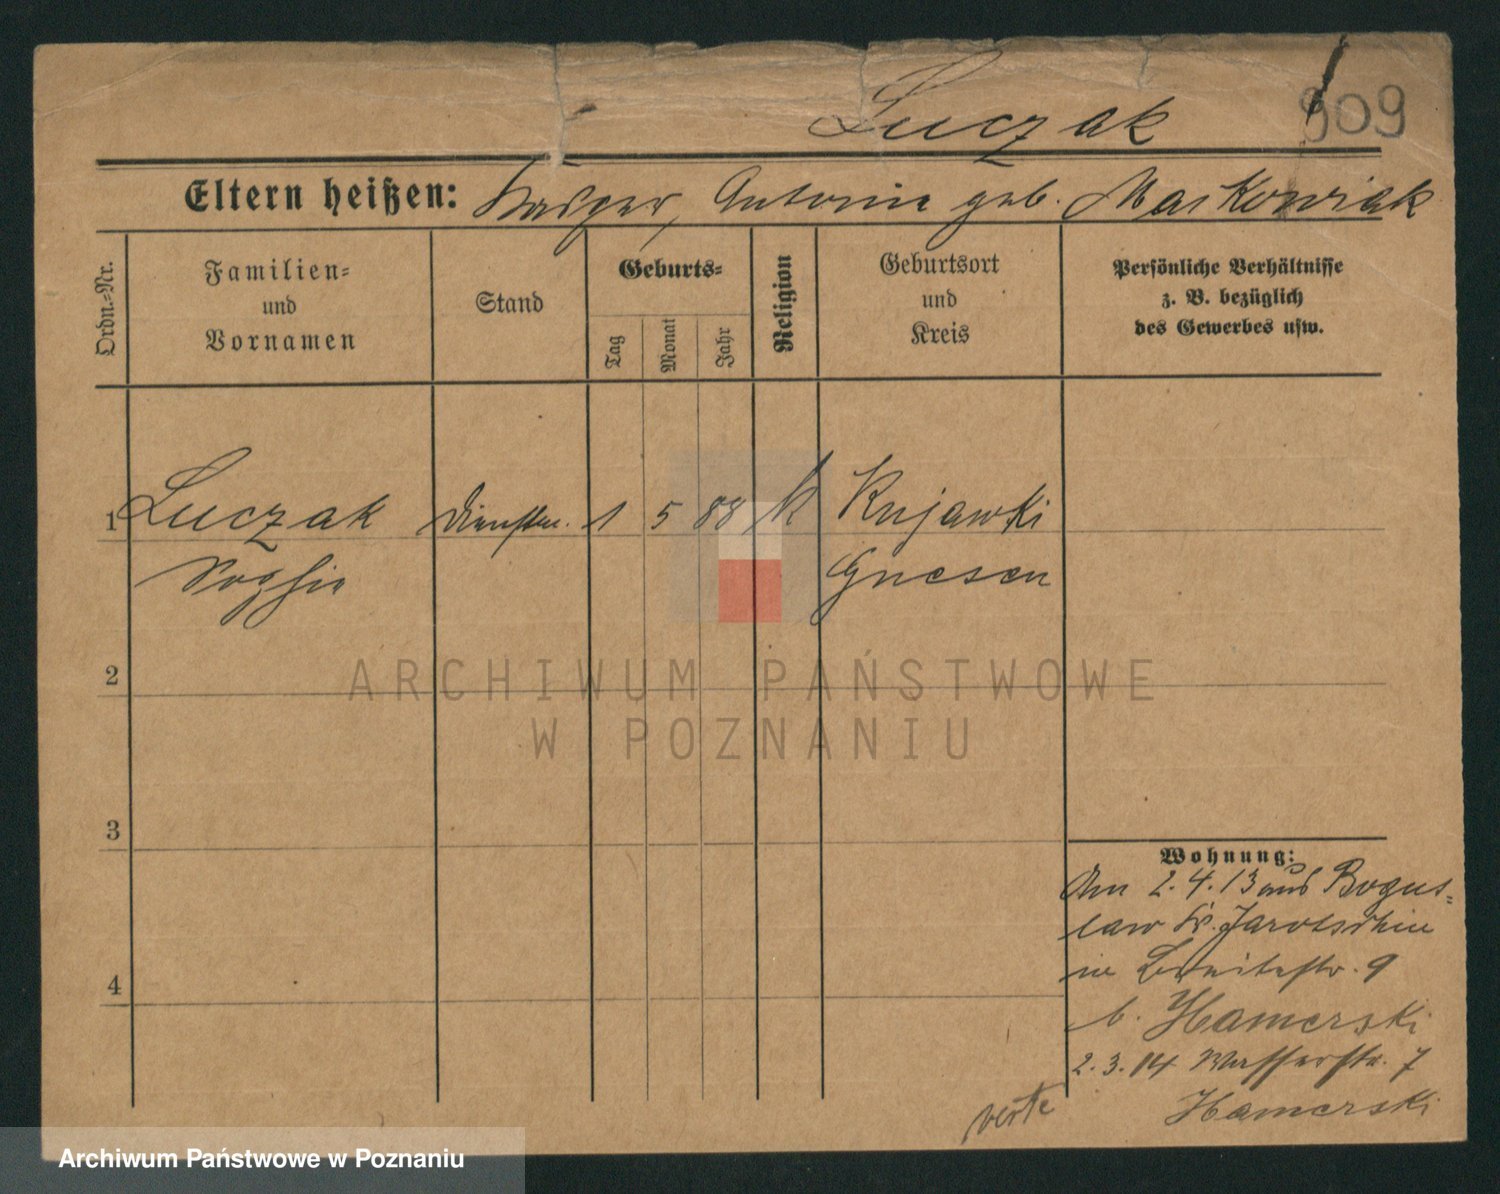 Luczak 909
Eltern heißen: Kasper, Antonie geb. Maskowiak
Ordn.=Nr.
Familien=
und
Vornamen
Stand
Geburts=
Tag
Monat
Jahr
Religion
Geburtsort
und
Kreis
Persönliche Verhältnisse
z. B. bezüglich
des Gewerbes usw.
1 Luczak Dienstm. 1 5 88 k Kujawki
Sophie Gnesen
2
3
4
Wohnung:
Am 2.4.13 aus Bogus=
law Kr. Jarotschin
in Breitestr. 9
b. Hamerski
2.3.14 Wasserstr. 7
Hamerski
verte
ARCHIWUM PAŃSTWOWE
W POZNANIU
Archiwum Państwowe w Poznaniu